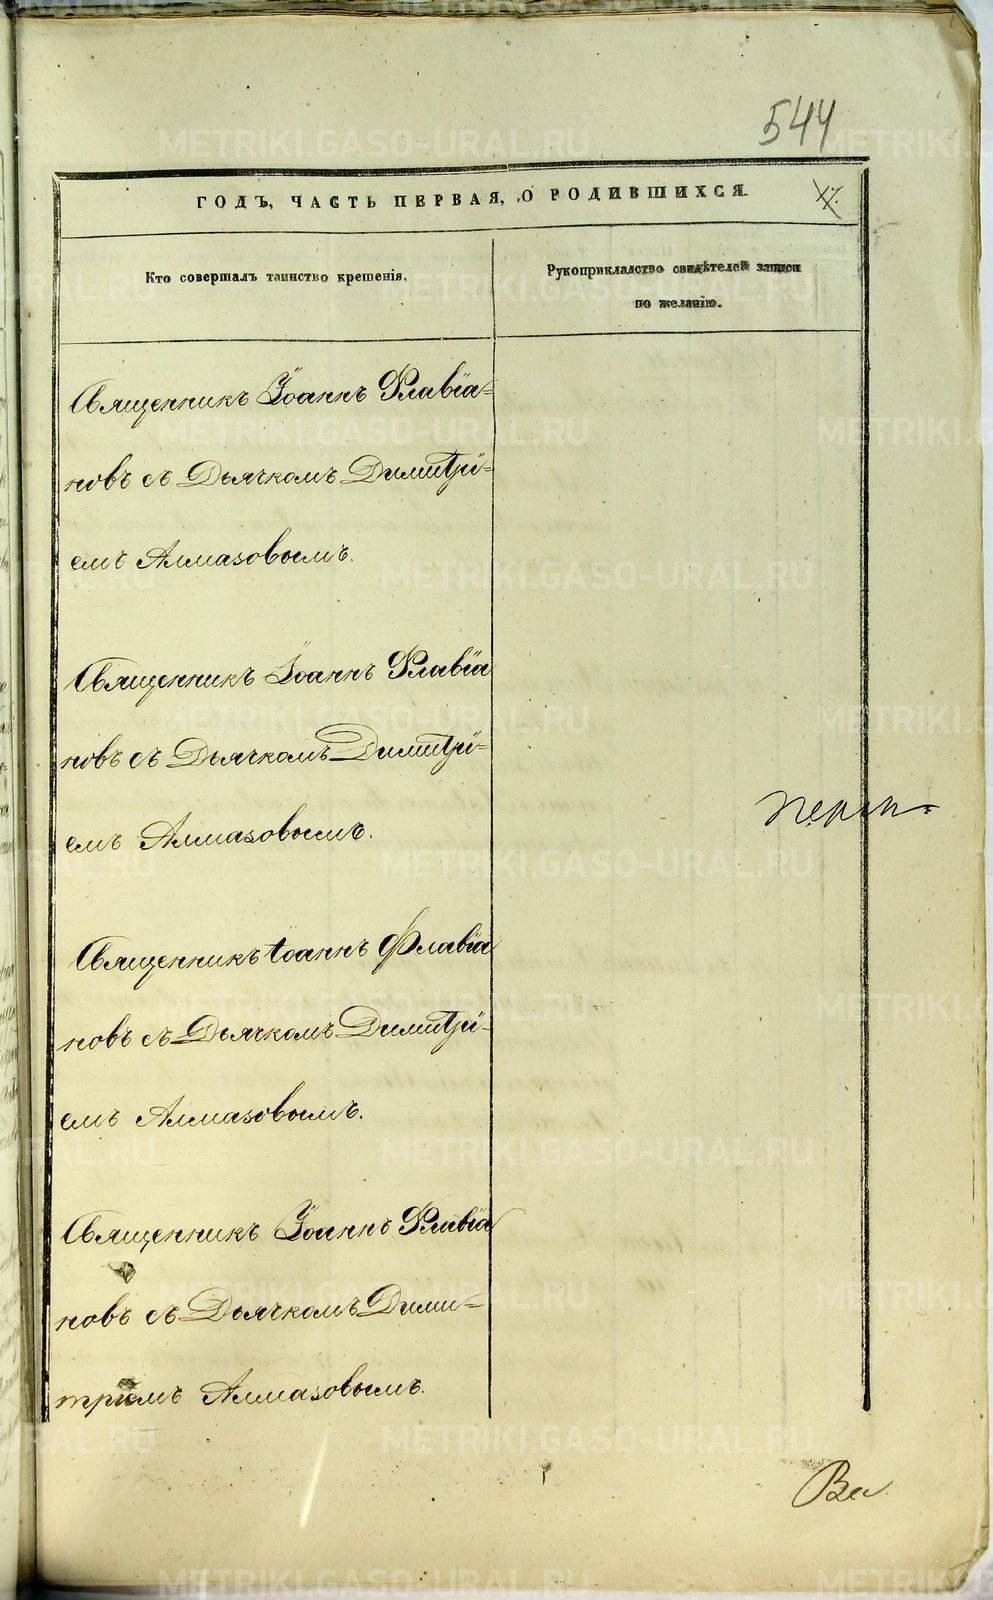 544
ГОДЪ, ЧАСТЬ ПЕРВАЯ, О РОДИВШИХСЯ.
17.
Кто совершалъ таинство крещенія.
Рукоприкладство свидѣтелей записи
по желанію.
Священникъ Іоаннъ Флавіа=
новъ съ Дьячкомъ Димитрі=
емъ Алмазовымъ.
Священникъ Іоаннъ Флавіа
новъ съ Дьячкомъ Димитрі=
емъ Алмазовымъ.
Священникъ Іоаннъ Флавіа
новъ съ Дьячкомъ Димитрі=
емъ Алмазовымъ.
Священникъ Іоаннъ Флавіа
новъ съ Дьячкомъ Дими=
тріемъ Алмазовымъ.
METRIKI.GASO-URAL.RU